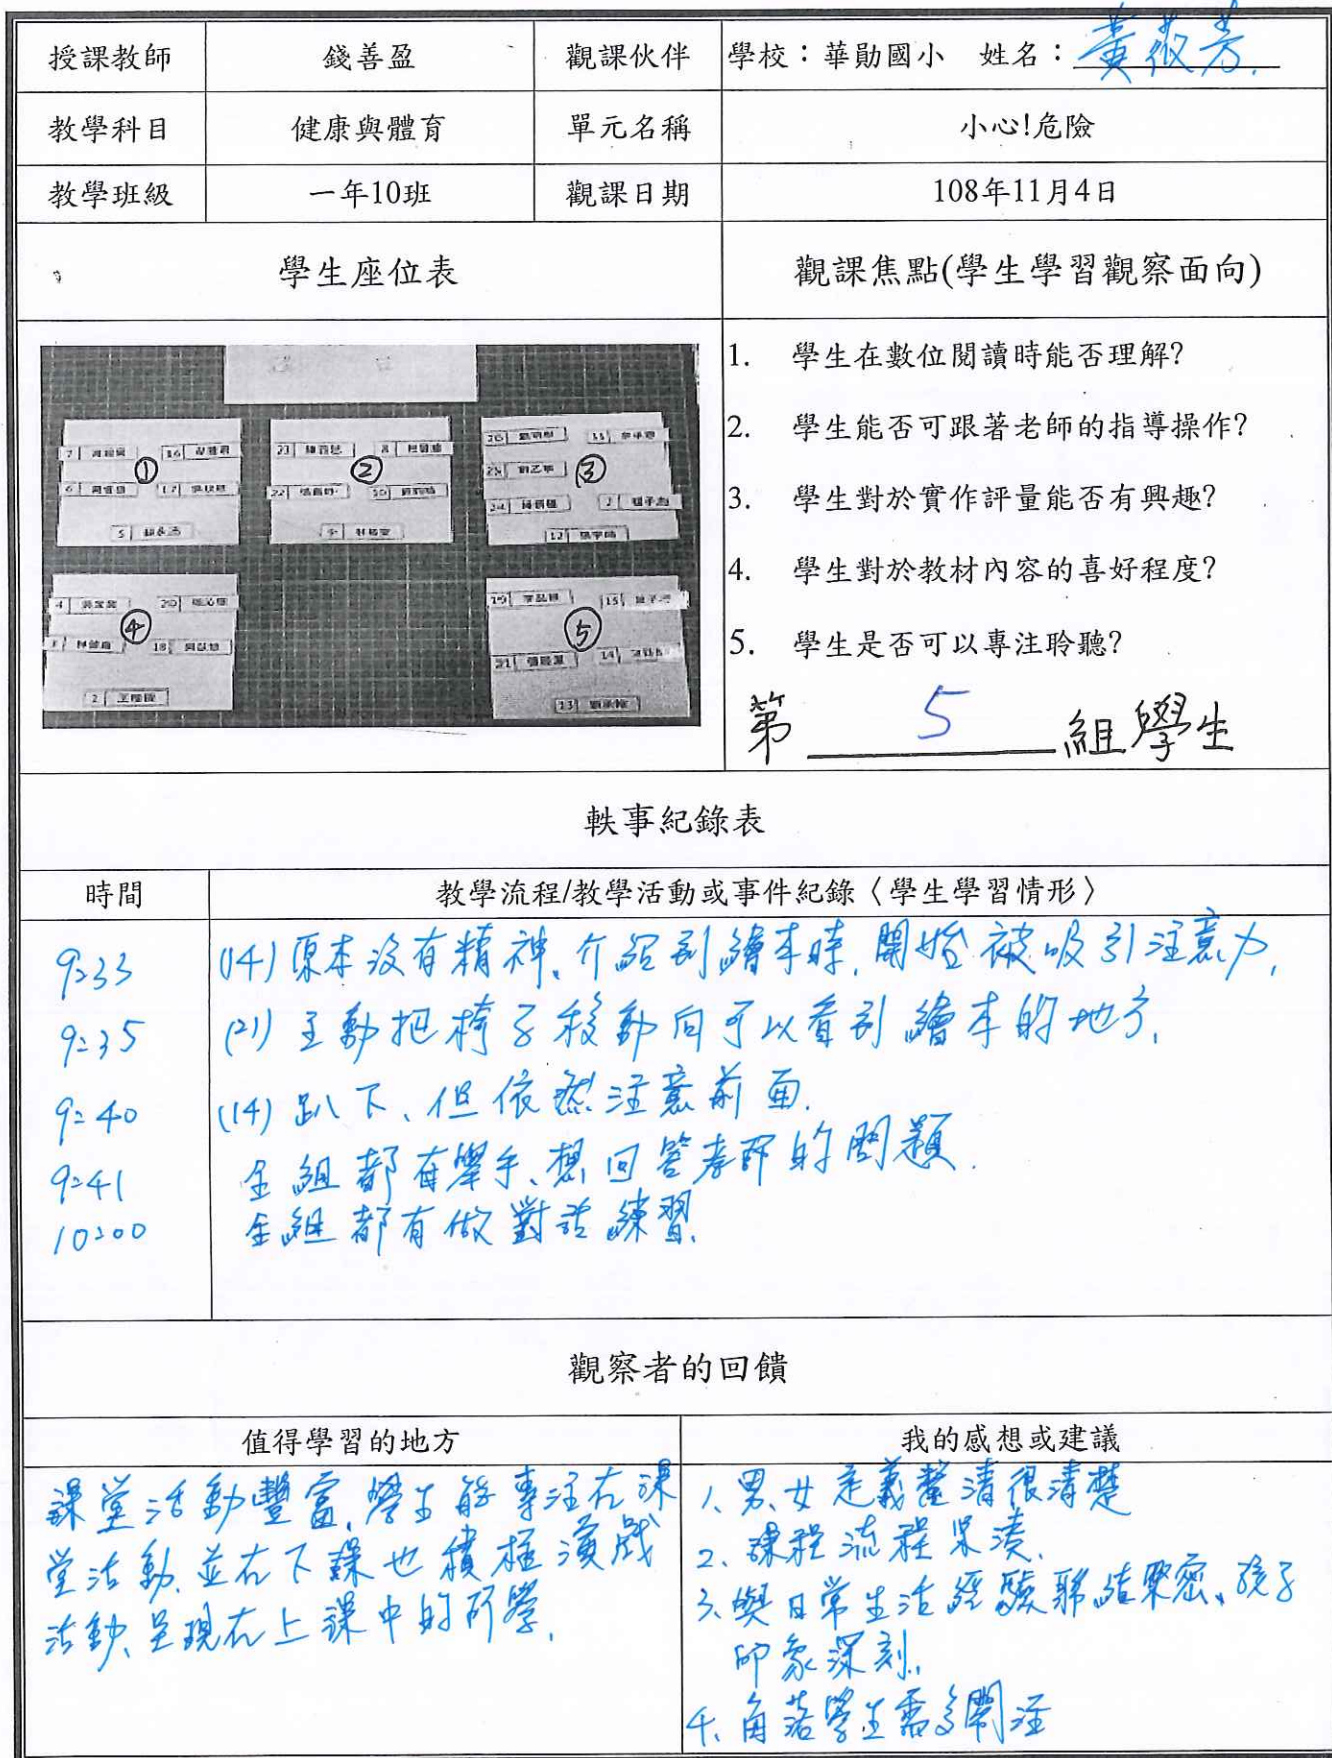 授課教師 錢善盈 觀課伙伴 學校：華勛國小 姓名：黃薇芳.
教學科目 健康與體育 單元名稱 小心!危險
教學班級 一年10班 觀課日期 108年11月4日
學生座位表 觀課焦點(學生學習觀察面向)
1. 學生在數位閱讀時能否理解?
2. 學生能否可跟著老師的指導操作?
3. 學生對於實作評量能否有興趣?
4. 學生對於教材內容的喜好程度?
5. 學生是否可以專注聆聽?
第 5 組學生
① ② ③
④ ⑤
軼事紀錄表
時間 教學流程/教學活動或事件紀錄〈學生學習情形〉
9:33 (14) 原本沒有精神、介紹到繪本時, 開始被吸引注意力,
9:35 (21) 主動把椅子移動向可以看到繪本的地方.
9:40 (14) 趴下、但依然注意前面.
9:41 全組都有舉手、想回答老師的問題.
10:00 全組都有做對話練習.
觀察者的回饋
值得學習的地方 我的感想或建議
課堂活動豐富, 學生能專注在課
堂活動, 並在下課也積極演戲
活動、呈現在上課中的所學.
1、男、女定義釐清很清楚
2、課程流程緊湊.
3、與日常生活經驗聯結緊密、孩子
印象深刻.
4、角落學生需多關注